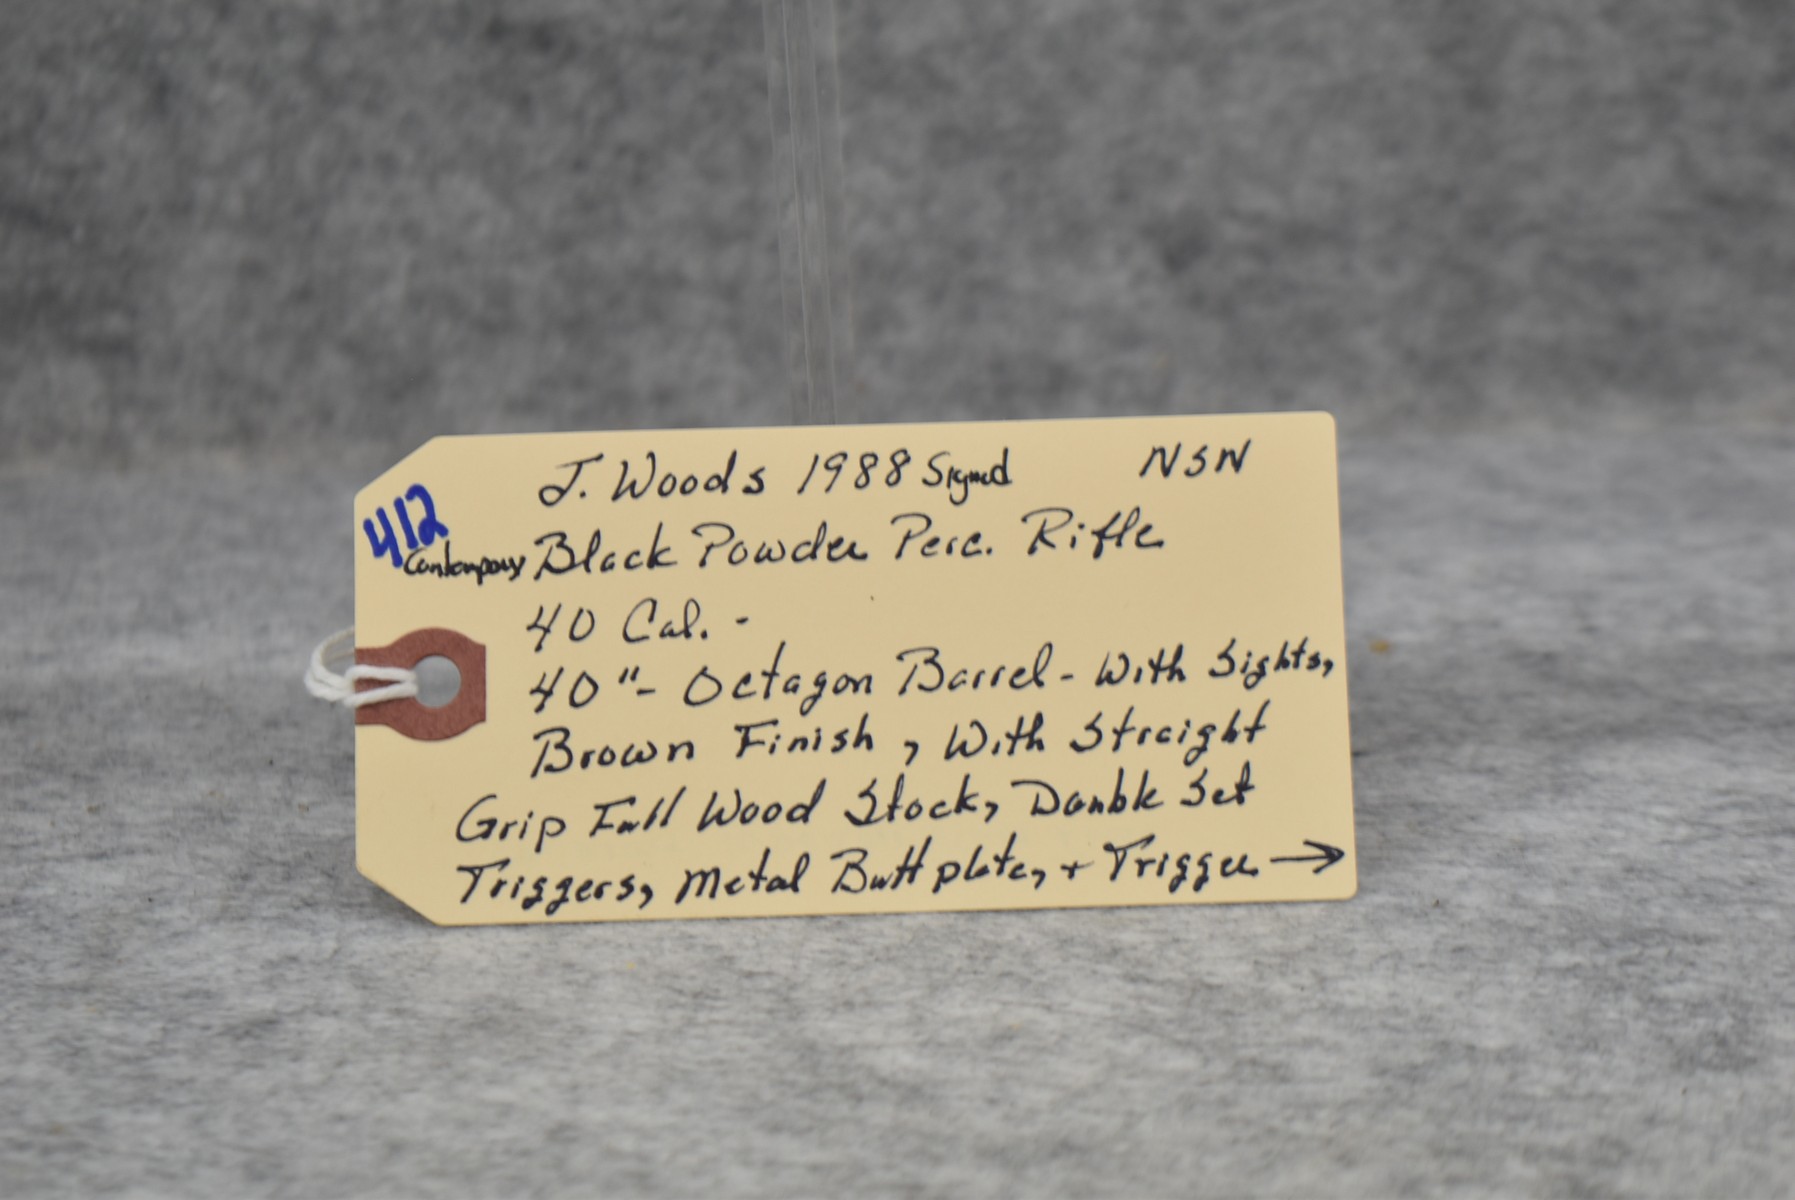 J. Woods 1988 Signed NSN
412
Contempory Black Powder Perc. Rifle
40 Cal. -
40"- Octagon Barrel - With Sights,
Brown Finish, With Straight
Grip Full Wood Stock, Double Set
Triggers, Metal Buttplate, + Trigger →